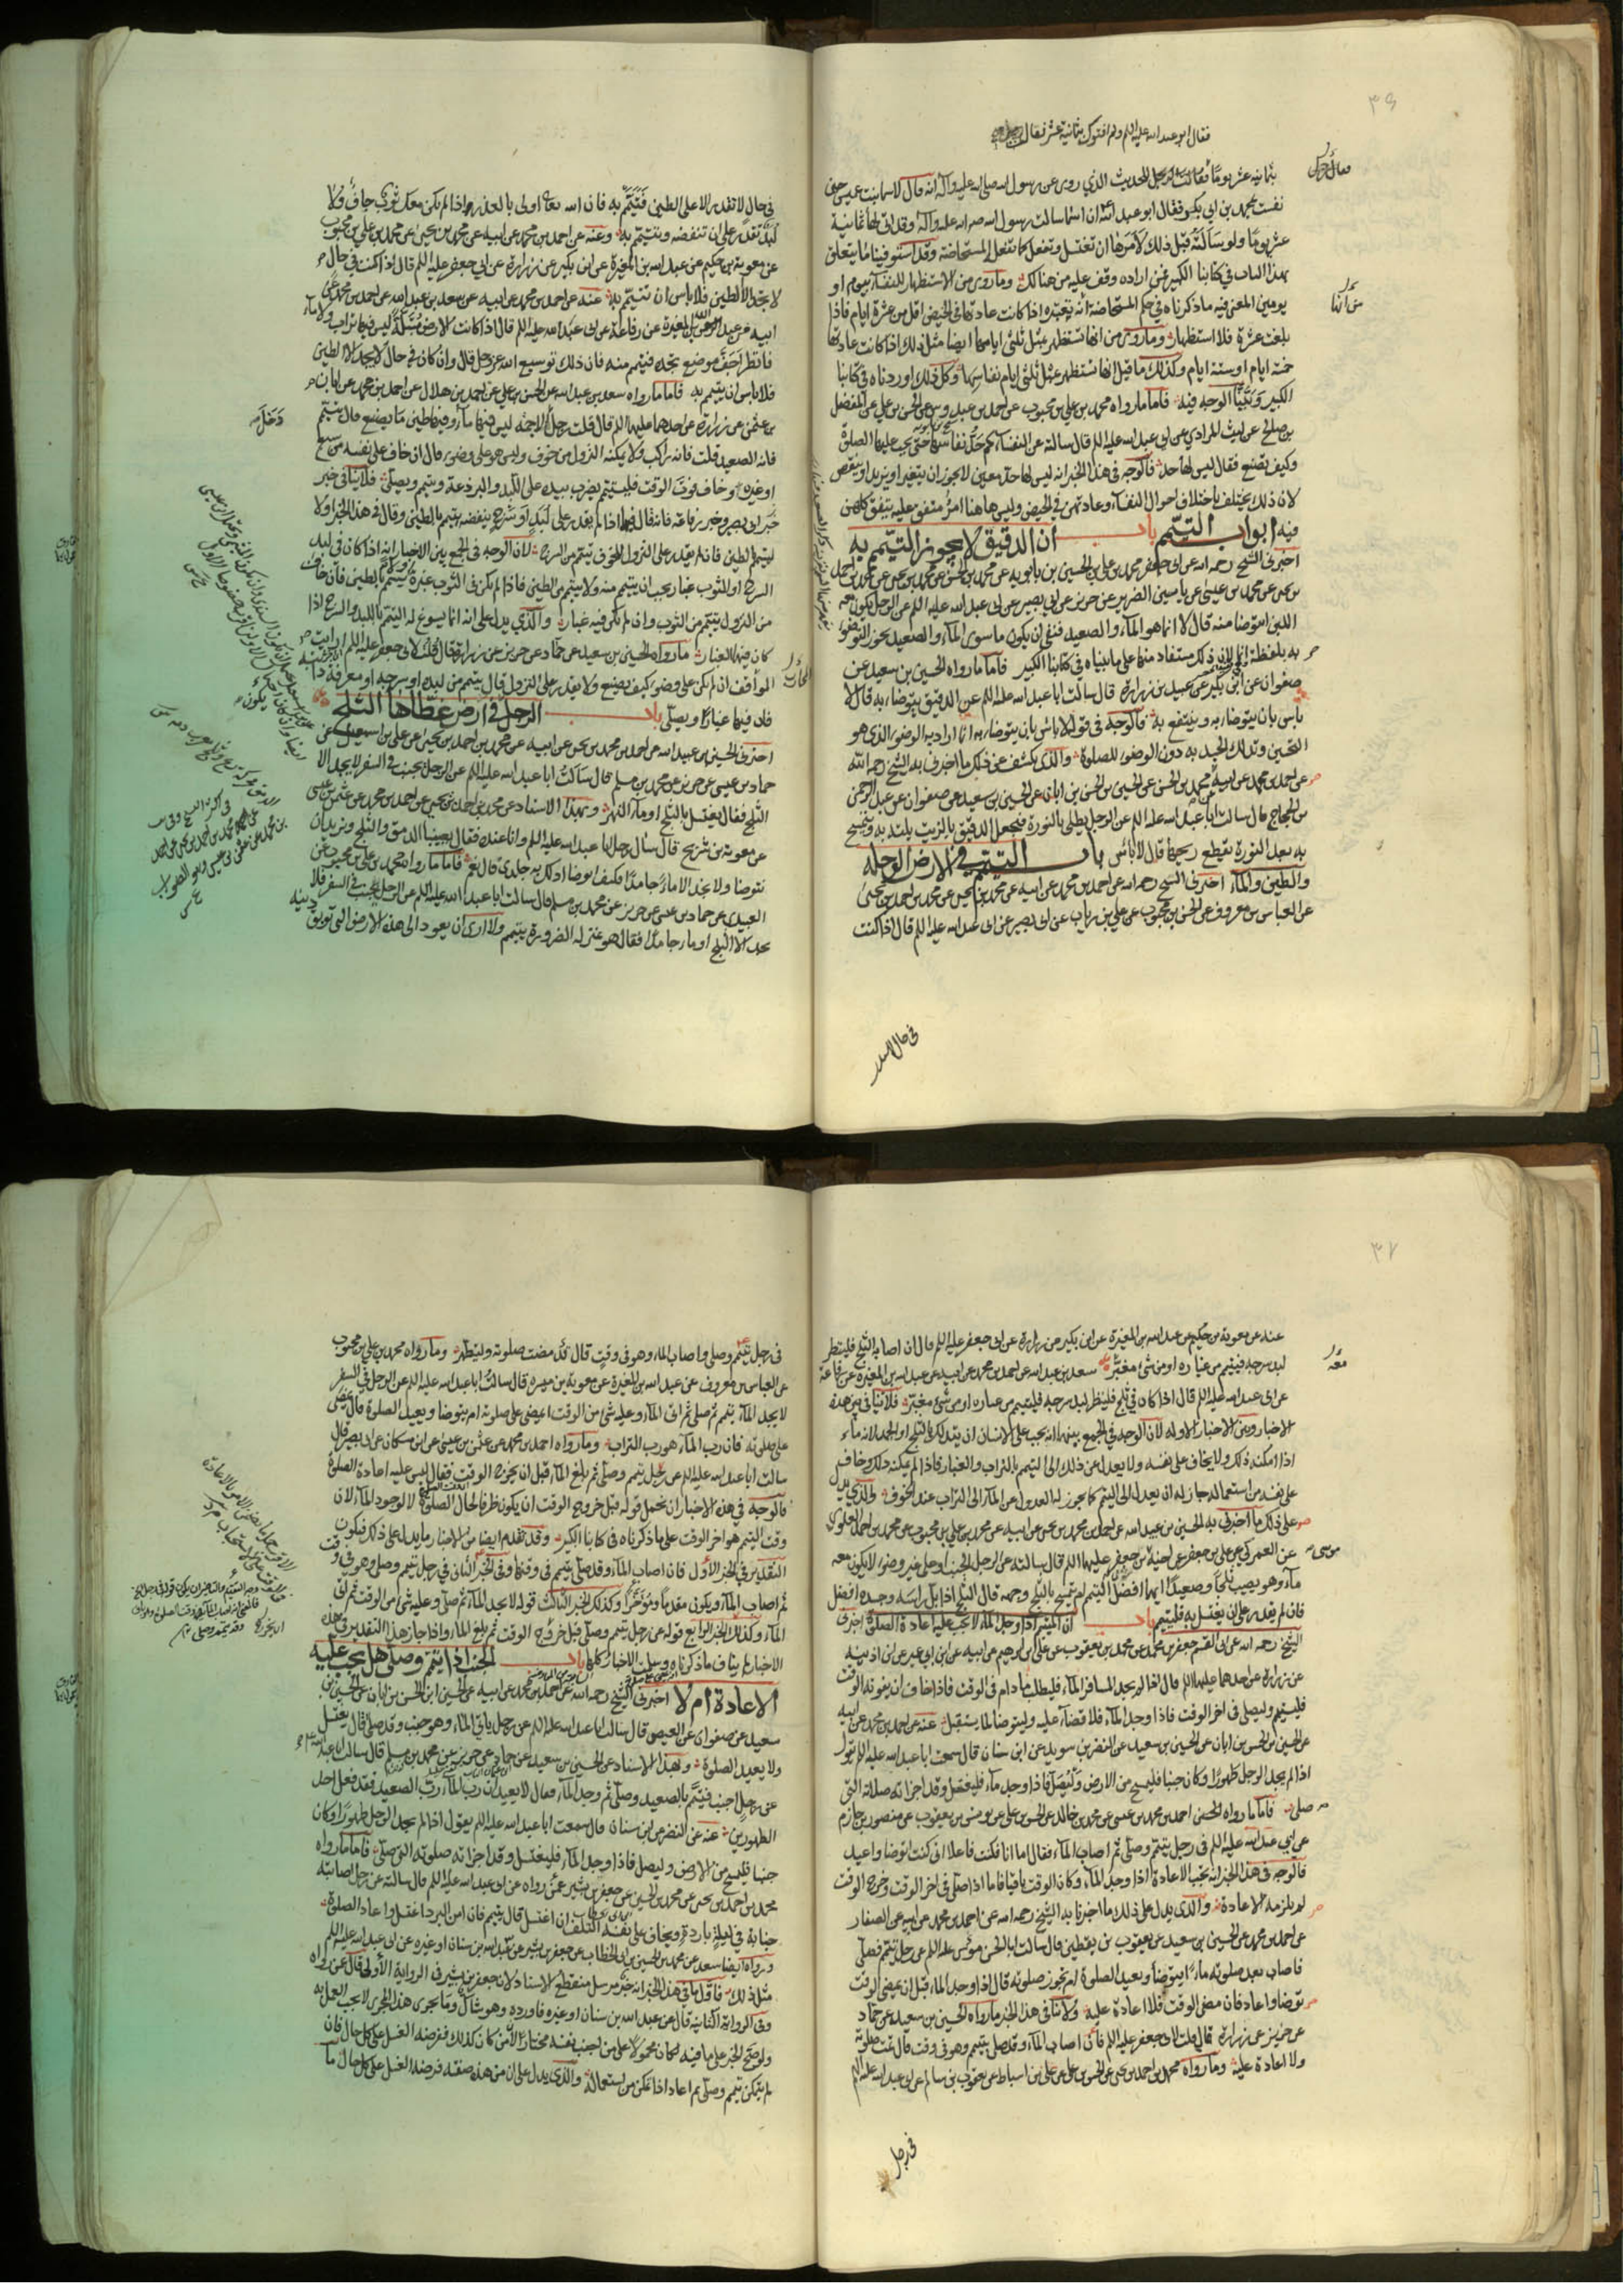 ٣٦
فقال ابو عبد الله عليه السلم ولم افتوك بثمانية عشر فقال
بثمانية عشر يوما فقال رجل للحديث الذي روى عن رسول الله صلى الله عليه وآله انه قال لاسماء بنت عميس حين
نفست بمحمد بن ابي بكر فقال ابو عبد الله ان اسماء سالت رسول الله صلى الله عليه وآله وقد اتى لها ثمانية
عشر يوما ولو سالته قبل ذلك لامرها ان تغتسل وتفعل كما تفعل المستحاضة وقد استوفينا ما يتعلق
بهذا الباب في كتابنا الكبير فمن اراده وقف عليه من هنالك وما روى من الاستظهار للنفساء بيوم او
يومين المعنى فيه ما ذكرناه في حكم المستحاضة انه تعتبره اذا كانت عادتها في الحيض اقل من عشرة ايام فاذا
بلغت عشرة فلا استظهار وما روى من انها تستظهر بمثل ثلثى ايامها ايضا مثل ذلك اذا كانت عادتها
خمسة ايام او ستة ايام وكذلك ما قيل انها تستظهر بمثل ثلثى ايام نفاسها وكل ذلك اوردناه في كتابنا
الكبير وبينا الوجه فيه فاما ما رواه محمد بن علي بن محبوب عن احمد بن عبدوس عن الحسن بن علي عن المفضل
بن صالح عن ليث المرادي عن ابي عبد الله عليه السلم قال سالته عن النفساء كم حد نفاسها حتى يجب عليها الصلوة
وكيف تصنع فقال ليس لها حد فالوجه في هذا الخبر انه ليس لها حد معين لا يجوز ان يتغير او يزيد او ينقص
لان ذلك يختلف باختلاف احوال النساء وعادتهن في الحيض وليس هاهنا امر متفق عليه يتفق كلهن
فيه ابواب التيمم باب ان الدقيق لا يجوز التيمم به
اخبرني الشيخ رحمه الله عن ابي جعفر محمد بن علي بن الحسين بن بابويه عن محمد بن الحسن عن محمد بن يحيى عن محمد بن احمد
بن يحيى عن محمد بن عيسى عن ياسين الضرير عن حريز عن ابي بصير عن ابي عبد الله عليه السلم عن الرجل يكون معه
اللبن ايتوضا منه قال لا انما هو الماء والصعيد فنفى ان يكون ما سوى الماء والصعيد يجوز التوضؤ
به بلفظة انما لان ذلك مستفاد منها على ما بيناه في كتابنا الكبير فاما ما رواه الحسين بن سعيد عن
صفوان عن ابن بكير عن عبيد بن زرارة قال سالت ابا عبد الله عليه السلم عن الدقيق يتوضاء به قال لا
باس بان يتوضاء به وينتفع به فالوجه في قوله لا باس بان يتوضاء به انما اراد به الوضوء الذي هو
التحسين وتدلك الجسد به دون الوضوء للصلوة والذي يكشف عن ذلك ما اخبرني به الشيخ رحمه الله
عن احمد بن محمد عن ابيه محمد بن الحسن عن الحسين بن الحسن بن ابان عن الحسين بن سعيد عن صفوان عن عبد الرحمن
بن الحجاج قال سالت ابا عبد الله عليه السلم عن الرجل يطلى بالنورة فيجعل الدقيق بالزيت يلته به ويتمسح
به بعد النورة يقطع ريحها قال لا باس باب التيمم في الارض الوحلة
والطين والماء اخبرني الشيخ رحمه الله عن احمد بن محمد عن ابيه عن محمد بن يحيى عن محمد بن احمد بن يحيى
عن العباس بن معروف عن الحسن بن محبوب عن علي بن رياب عن ابي بصير عن ابي عبد الله عليه السلم قال اذا كنت
في حال لا تقدر
في حال لا تقدر الا على الطين فتيمم به فان الله تعالى اولى بالعذر اذا لم يكن معك ثوب جاف ولا
لبد تقدر على ان تنفضه وتتيمم به وعنه عن احمد بن محمد عن ابيه عن محمد بن يحيى عن محمد بن علي بن محبوب
عن معوية بن حكيم عن عبد الله بن المغيرة عن ابن بكير عن زرارة عن ابي جعفر عليه السلم قال اذا كنت في حال
لا تجد الا الطين فلا باس ان تتيمم به عنه عن احمد بن محمد عن ابيه عن سعد بن عبد الله عن احمد بن محمد عن
ابيه عن عبد الله بن المغيرة عن رفاعة عن ابي عبد الله عليه السلم قال اذا كانت الارض مبتلة ليس فيها تراب ولا ماء
فانظر اجف موضع تجده فتيمم منه فان ذلك توسيع من الله عز وجل قال وان كان في حال لا يجد الا الطين
فلا باس ان يتيمم به فاما ما رواه سعد بن عبد الله عن الحسن بن علي عن احمد بن هلال عن احمد بن محمد عن ابان
بن عثمن عن زرارة عن احدهما عليهما السلم قال قلت رجل الاجمة ليس فيها ماء وفيها طين ما يصنع قال يتيمم
فانه الصعيد قلت فانه راكب ولا يمكنه النزول من خوف وليس هو على وضوء قال ان خاف على نفسه من سبع
او غيره وخاف فوت الوقت فليتيمم يضرب بيده على اللبد والبرذعة ويتيمم ويصلي فلا ينافي خبر
خبر ابي بصير وخبر رفاعة فانه قال فيهما اذا لم يقدر على لبد او سرج ينفضه تيمم بالطين وقال في هذا الخبر اولا
ليتيمم بالطين فان لم يقدر على النزول للخوف تيمم من السرج لان الوجه في الجمع بين الاخبار انه اذا كان في لبد
السرج او الثوب غبار يجب ان يتيمم منه ولا يتيمم من الطين فاذا لم يكن في الثوب غبرة يتيمم بالطين فان خاف
من النزول يتيمم من الثوب وان لم يكن فيه غبار والذي يدل على انه انما يسوغ له التيمم باللبد والسرج اذا
كان فيها الغبار ما رواه الحسين بن سعيد عن حماد عن حريز عن زرارة قال قلت لابي جعفر عليه السلم ارايت
المواقف ان لم يكن على وضوء كيف يصنع ولا يقدر على النزول قال يتيمم من لبده او سرجه او معرفة دابته
فان فيها غبارا ويصلي باب الرجل في ارض غطاها الثلج
اخبرني الحسين بن عبيد الله عن احمد بن محمد بن يحيى عن ابيه عن محمد بن احمد بن يحيى عن علي بن اسمعيل عن
حماد بن عيسى عن حريز عن محمد بن مسلم قال سالت ابا عبد الله عليه السلم عن الرجل يجنب في السفر لا يجد الا
الثلج فقال يغتسل بالثلج او ماء النهر وبهذا الاسناد عن محمد بن احمد بن يحيى عن احمد بن محمد عن عثمن بن عيسى
عن معوية بن شريح قال سال رجل ابا عبد الله عليه السلم وانا عنده فقال يصيبنا الدمق والثلج ونريد ان
نتوضا ولا نجد الا ماء جامدا فكيف اتوضا ادلك به جلدي قال نعم فاما ما رواه محمد بن علي بن محبوب عن
العبيدي عن حماد بن عيسى عن حريز عن محمد بن مسلم قال سالت ابا عبد الله عليه السلم عن الرجل يجنب في السفر فلا
يجد الا الثلج او ماء جامدا فقال هو بمنزلة الضرورة يتيمم ولا ارى ان يعود الى هذه الارض التي توبق دينه
٣٧
عنه عن معوية بن حكيم عن عبد الله بن المغيرة عن ابن بكير عن زرارة عن ابي جعفر عليه السلم قال ان اصابه الثلج فلينظر
لبد سرجه فيتيمم من غباره او من شيء مغبر سعد بن عبد الله عن احمد بن محمد عن ابيه عن عبد الله بن المغيرة عن رفاعة
عن ابي عبد الله عليه السلم قال اذا كان في ثلج فلينظر لبد سرجه فليتيمم من غباره او من شيء مغبر فلا تنافي بين هذه
الاخبار وبين الاخبار الاوله لان الوجه في الجمع بينها انه يجب على الانسان ان يتدلك بالثلج او الجمد لانه ماء
اذا امكنه ذلك ولا يخاف على نفسه ولا يعدل عن ذلك الى التيمم بالتراب والغبار فاذا لم يمكنه ذلك وخاف
على نفسه من استعماله جاز له ان يعدل الى التيمم كما يجوز له العدول عن الماء الى التراب عند الخوف والذي يدل
على ذلك ما اخبرني به الحسين بن عبيد الله عن احمد بن محمد بن يحيى عن ابيه عن محمد بن علي بن محبوب عن محمد بن احمد العلوي
عن العمركي عن علي بن جعفر عن اخيه موسى بن جعفر عليهما السلم قال سالته عن الرجل الجنب او على غير وضوء لا يكون معه
ماء وهو يصيب ثلجا وصعيدا ايهما افضل التيمم ام يتمسح بالثلج وجهه قال الثلج اذا بل راسه وجسده افضل
فان لم يقدر على ان يغتسل به فليتيمم باب ان المتيمم اذا وجد الماء لا يجب عليه اعادة الصلوة اخبرني
الشيخ رحمه الله عن ابي القسم جعفر بن محمد عن محمد بن يعقوب عن علي بن ابرهيم عن ابيه عن ابن ابي عمير عن ابن اذينة
عن زرارة عن احدهما عليهما السلم قال اذا لم يجد المسافر الماء فليطلب ما دام في الوقت فاذا خاف ان يفوته الوقت
فليتيمم وليصلي في اخر الوقت فاذا وجد الماء فلا قضاء عليه وليتوضا لما يستقبل عنه عن احمد بن محمد عن ابيه
عن الحسين بن الحسن بن ابان عن الحسين بن سعيد عن النضر بن سويد عن ابن سنان قال سمعت ابا عبد الله عليه السلم يقول
اذا لم يجد الرجل طهورا وكان جنبا فليمسح من الارض وليصل فاذا وجد ماء فليغتسل وقد اجزاته صلاته التي
صلى فاما ما رواه الحسن احمد بن محمد بن عيسى عن محمد بن خالد عن الحسن بن علي عن يونس بن يعقوب عن منصور بن حازم
عن ابي عبد الله عليه السلم في رجل يتيمم وصلى ثم اصاب الماء فقال اما انا فكنت فاعلا اني كنت اتوضا واعيد
فالوجه في هذا الخبر انه يجب الاعادة اذا وجد الماء وكان الوقت باقيا فاما اذا صلى في اخر الوقت وخرج الوقت
لم يلزمه الاعادة والذي يدل على ذلك ما اخبرنا به الشيخ رحمه الله عن احمد بن محمد عن ابيه عن الصفار
عن احمد بن محمد عن الحسين بن سعيد عن يعقوب بن يقطين قال سالت ابا الحسن موسى عليه السلم عن رجل تيمم فصلى
فاصاب بعد صلوته ماء ايتوضأ ويعيد الصلوة ام تجوز صلوته قال اذا وجد الماء قبل ان يمضي الوقت
توضا واعاد فان مضى الوقت فلا اعادة عليه ولا ينافي هذا الخبر ما رواه الحسين بن سعيد عن حماد
عن حريز عن زرارة قال قلت لابي جعفر عليه السلم فان اصاب الماء وقد صلى بتيمم وهو في وقت قال تمت صلوته
ولا اعادة عليه وما رواه محمد بن احمد بن يحيى عن الحسن بن علي عن علي بن اسباط عن يعقوب بن سالم عن ابي عبد الله عليه السلم
في رجل
في رجل تيمم وصلى واصاب الماء وهو في وقت قال قد مضت صلوته وليتطهر وما رواه محمد بن علي بن محبوب
عن العباس بن معروف عن عبد الله بن المغيرة عن معوية بن ميسرة قال سالت ابا عبد الله عليه السلم عن الرجل في السفر
لا يجد الماء يتيمم ثم صلى ثم اتى الماء وعليه شيء من الوقت ايمضي على صلوته ام يتوضا ويعيد الصلوة قال يمضي
على صلوته فان رب الماء هو رب التراب وما رواه احمد بن محمد عن عثمن بن عيسى عن ابن مسكان عن ابي بصير قال
سالت ابا عبد الله عليه السلم عن رجل تيمم وصلى ثم بلغ الماء قبل ان يخرج الوقت فقال ليس عليه اعادة الصلوة
فالوجه في هذه الاخبار ان نحمل قوله قبل خروج الوقت ان يكون ظرفا لحال الصلوة لا لوجود الماء لان
وقت التيمم هو اخر الوقت على ما ذكرناه في كتابنا الكبير وقد تقدم ايضا من الاخبار ما يدل على ذلك فيكون
التقدير في الخبر الاول فان اصاب الماء وقد صلى بتيمم في وقتها وفي الخبر الثاني في رجل تيمم وصلى وهو في وقت
ثم اصاب الماء ويكون مقدما ومؤخرا وكذلك الخبر الثالث قوله لا يجد الماء ثم صلى وعليه شيء من الوقت ثم اتى
الماء وكذلك الخبر الرابع قوله عن رجل تيمم وصلى قبل خروج الوقت ثم بلغ الماء واذا جاز هذا التقدير في هذه
الاخبار لم يناف ما ذكرناه وسلمت الاخبار كلها باب الجنب اذا تيمم وصلى هل يجب عليه
الاعادة ام لا اخبرني الشيخ رحمه الله عن احمد بن محمد عن ابيه عن الحسين ابن الحسن بن ابان عن الحسين بن
سعيد عن صفوان عن العيص قال سالت ابا عبد الله عليه السلم عن رجل ياتي الماء وهو جنب وقد صلى قال يغتسل
ولا يعيد الصلوة وبهذا الاسناد عن الحسين بن سعيد عن حماد عن حريز عن محمد بن مسلم قال سالت ابا عبد الله
عن رجل اجنب فتيمم بالصعيد وصلى ثم وجد الماء فقال لا يعيد ان رب الماء رب الصعيد فقد فعل احد
الطهورين عنه عن النضر عن ابن سنان قال سمعت ابا عبد الله عليه السلم يقول اذا لم يجد الرجل طهورا وكان
جنبا فليمسح من الارض وليصل فاذا وجد الماء فليغتسل وقد اجزاته صلوته التي صلى فاما ما رواه
محمد بن احمد بن يحيى عن محمد بن الحسين عن جعفر بن بشير عمن رواه عن ابي عبد الله عليه السلم قال سالته عن رجل اصابته
جنابة في ليلة باردة ويخاف على نفسه التلف ان اغتسل قال يتيمم فان امن البرد اغتسل واعاد الصلوة
ورواه ايضا سعد عن محمد بن الحسين بن ابي الخطاب عن جعفر بن بشير عن عبد الله بن سنان او غيره عن ابي عبد الله عليه السلم
مثل ذلك فاول ما في هذا الخبر انه خبر مرسل منقطع الاسناد لان جعفر بن بشير في الرواية الاولى قال عمن رواه
وفي الرواية الثانية قال عن عبد الله بن سنان او غيره فاورده وهو شاك وما يجرى هذا المجرى لا يجب العمل به
ولو صح الخبر على ما فيه لكان محمولا على من اجنب نفسه مختارا لان من كان كذلك ففرضه الغسل على كل حال فان
لم يتمكن تيمم وصلى ثم اعاد اذا تمكن من استعماله والذي يدل على ان من هذه صفته فرضه الغسل على كل حال ما